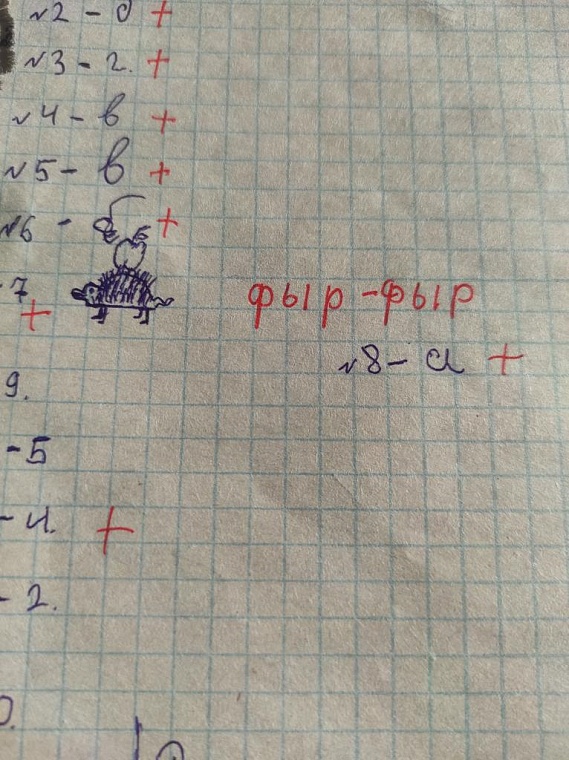 №2 - б +
№3 - г. +
№4 - в +
№5 - в +
№6 - б +
7
+
фыр-фыр
№8 - а +
9.
- 5
- 4. +
- 2.
0.